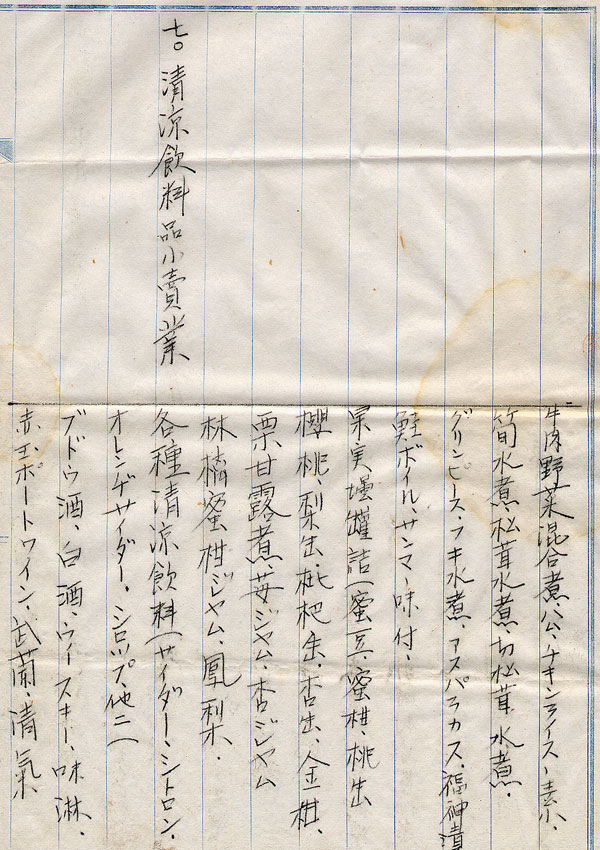 牛肉野菜混合煮、ハム、チキンライスノ素、
筍水煮、松茸水煮、切松茸水煮、
グリンピース、フキ水煮、アスパラカス、福神漬
鮭ボイル、サンマ味付、
果実壜罐詰(蜜豆、蜜柑、桃缶
櫻桃、梨缶、枇杷缶、杏缶、金柑、
栗甘露煮、苺ジャム、杏ジャム
林檎蜜柑ジャム、鳳梨、
七〇 清涼飲料品小賣業
各種清涼飲料(サイダー、シトロン、
オレンヂサイダー、シロップ、他ニ)
ブドウ酒、白酒、ウイースキー、味淋、
赤玉ポートワイン、武蘭、清氣